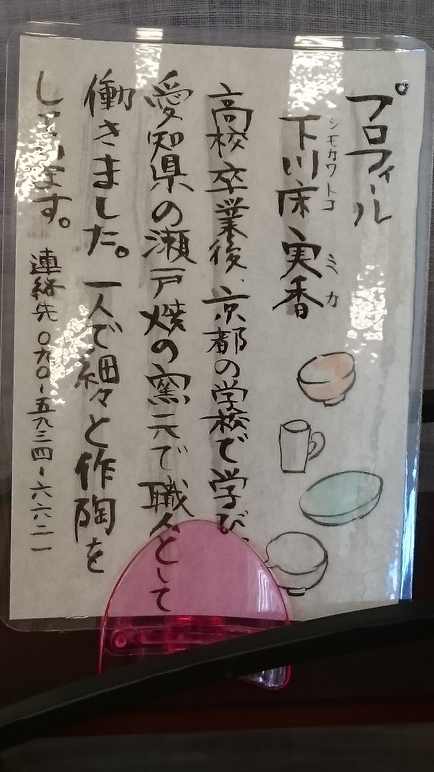 プロフィール
下川床 実香
シモカワトコ ミカ
高校卒業後、京都の学校で学び、
愛知県の瀬戸焼の窯元で職人として
働きました。一人で細々と作陶を
しています。
連絡先 〇九〇-五九三四-六六二一